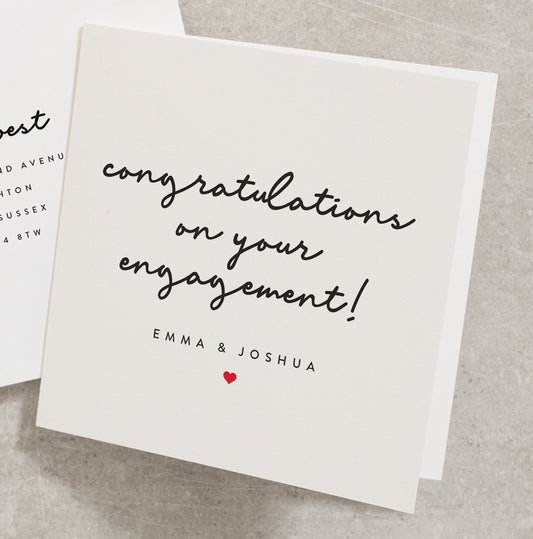 best
AVENU
SUSSEX
8TW
congratulations
on your
engagement!
EMMA & JOSHUA